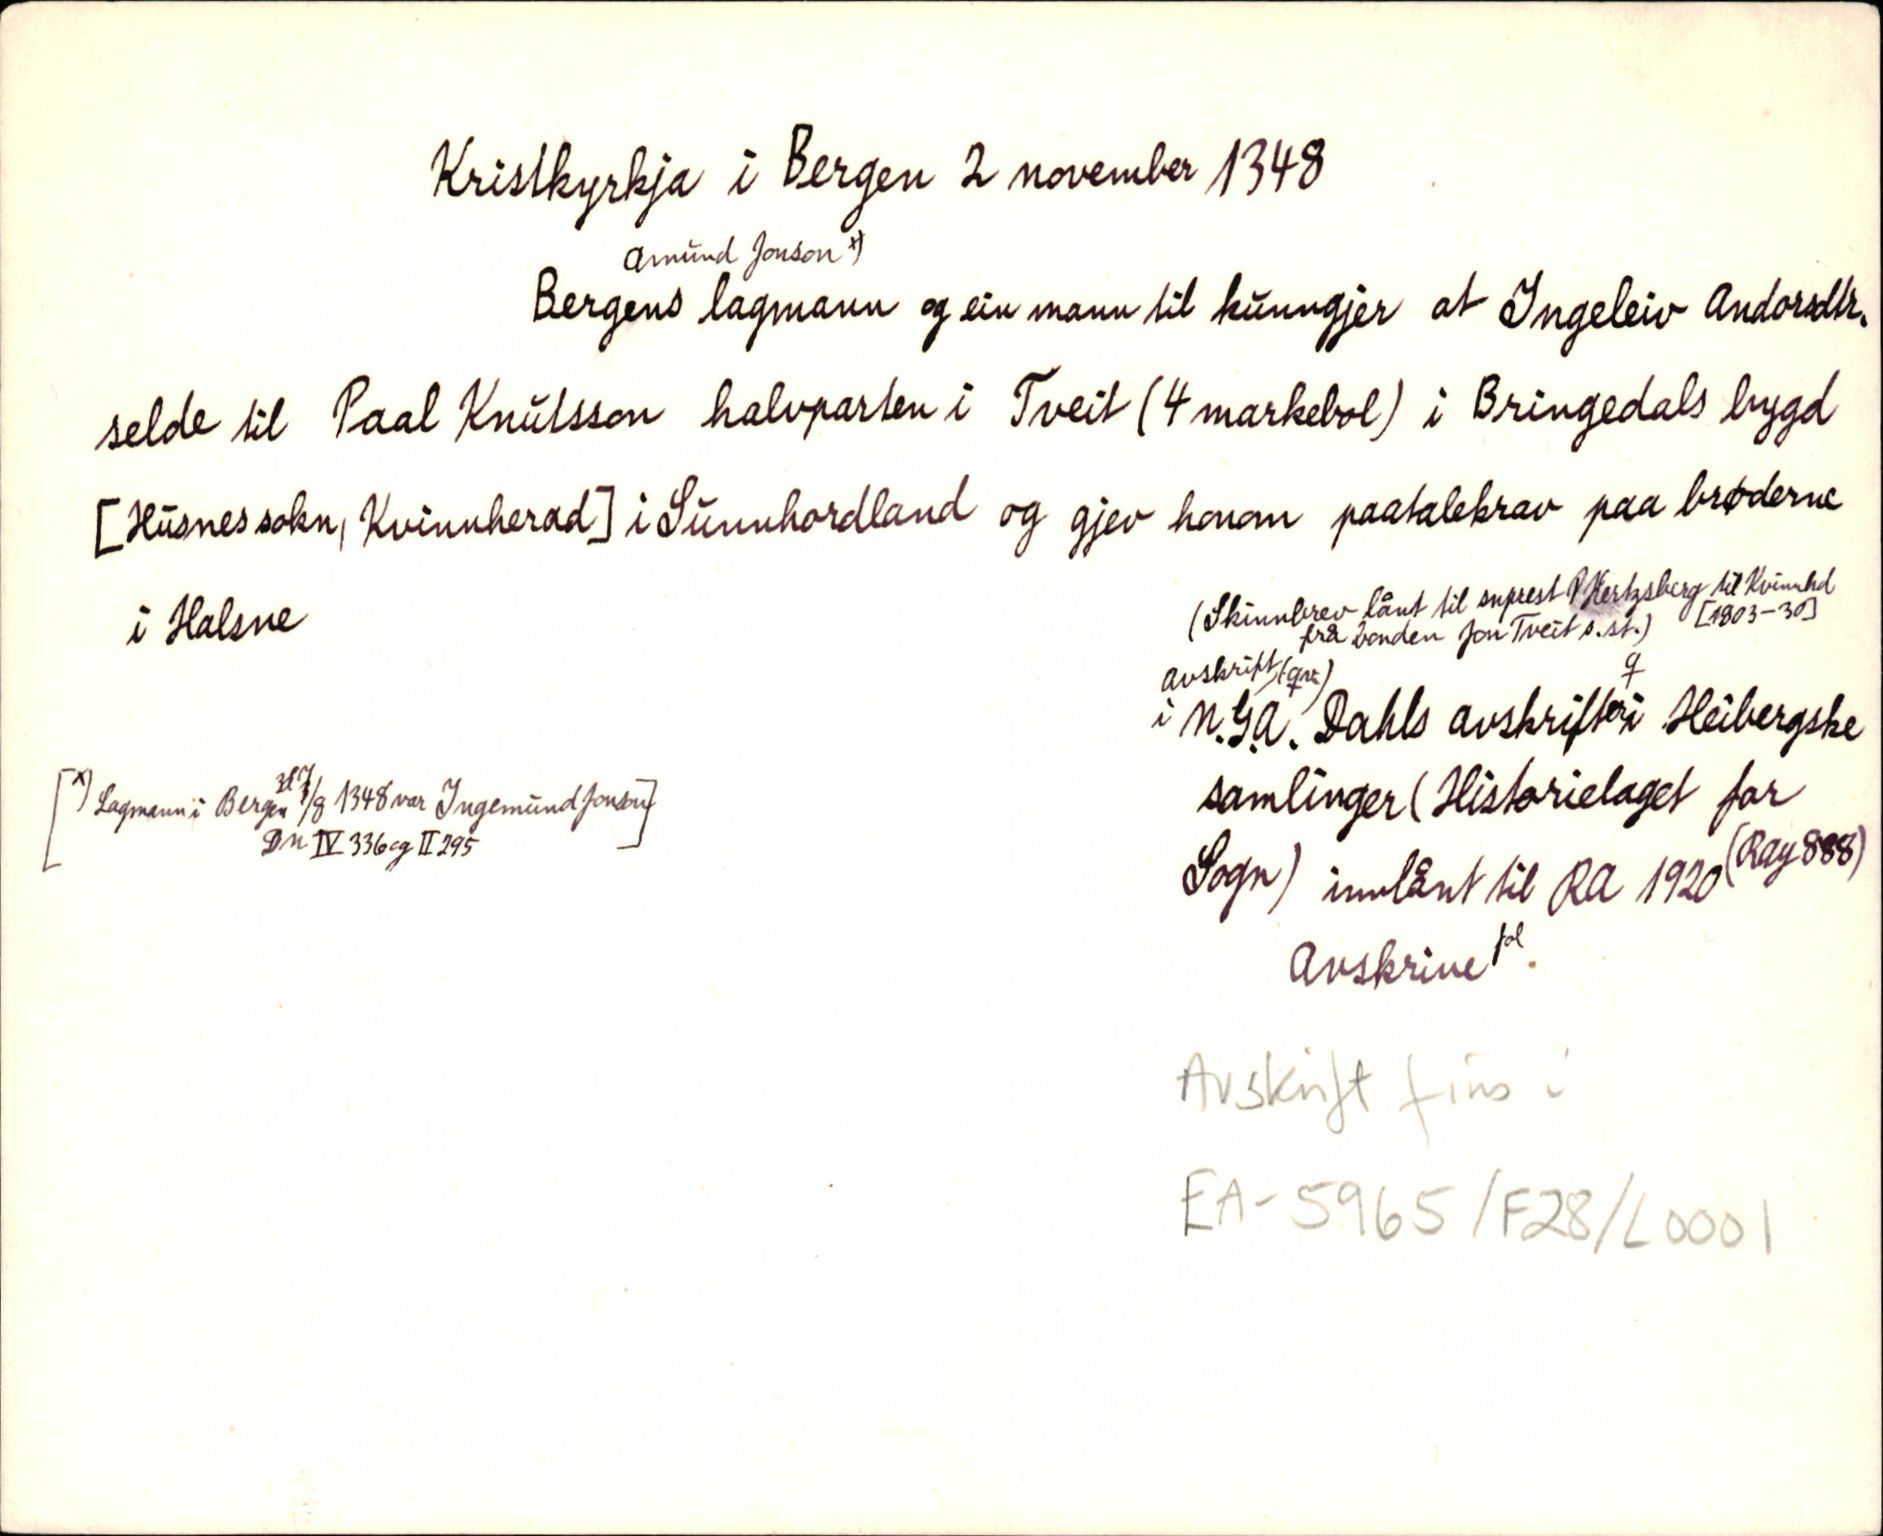 Kristkyrkja i Bergen 2 november 1348
Amund Jonson x)
Bergens lagmann og ein mann til kunngjer at Ingeleiv Andorsdtr.
selde til Paal Knutsson halvparten i Tveit (4 markebol) i Bringedals bygd
[Husnes sokn, Kvinnherad] i Sunnhordland og gjev honom paatalekrav paa brøderne
i Halsne
(Skinnbrev lånt til soprest P Hertzberg til Kvinnhd
frå bonden Jon Tveit s.st.) [1803-30]
avskrift (qv.)
i N.G.A. Dahls avskrifter i Heibergske
samlinger (Historielaget for
Sogn) innlånt til RA 1920 (Ray 888)
Avskrive fol.
[x) Lagmann i Bergen /8 1348 var Ingemund Jonson]
Dn IV 336 og II 295
Avskrift fins i
EA-5965/F28/L0001